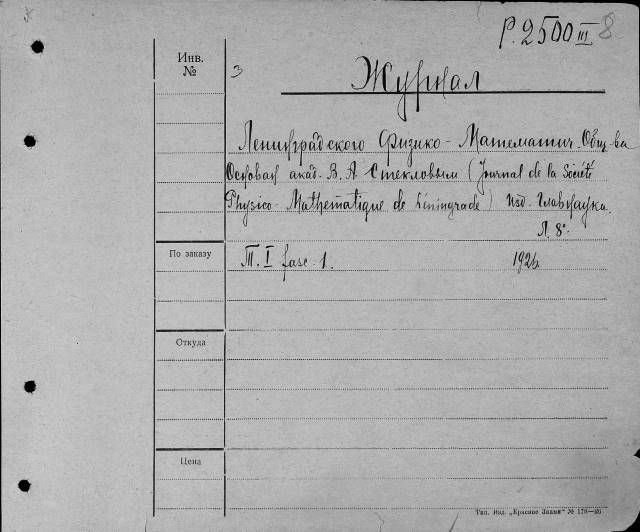 Р.2500 III 8
Инв.
№
З
Журнал
Ленинградского Физико-Математич. Общ-ва
Основан акад. В. А Стекловым (Journal de la Société
Physico-Mathématique de Léningrade) Изд. Главнаука.
Л. 8°.
По заказу
Т. I fasc. 1.
1926
Откуда
Цена
Тип. Изд. „Красное Знамя" № 178—26